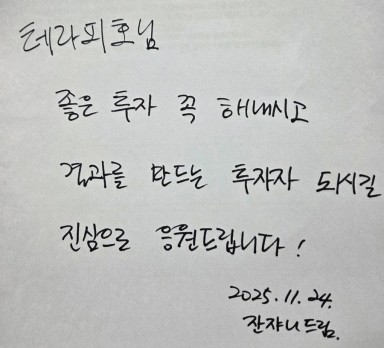 테라피호님
좋은 투자 꼭 해내시고
결과를 만드는 투자자 되시길
진심으로 응원드립니다!
2025.11.24.
잔쟈니드림.